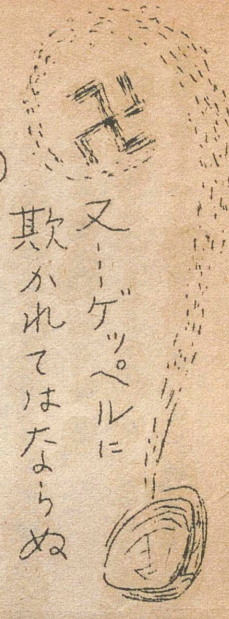 又——ゲッペルに
欺かれてはならぬ